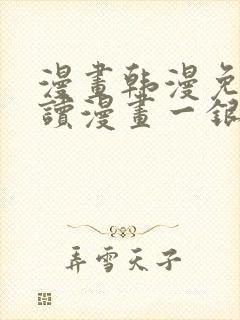 漫畫韩漫免
讀漫畫一銀
弄雪天子